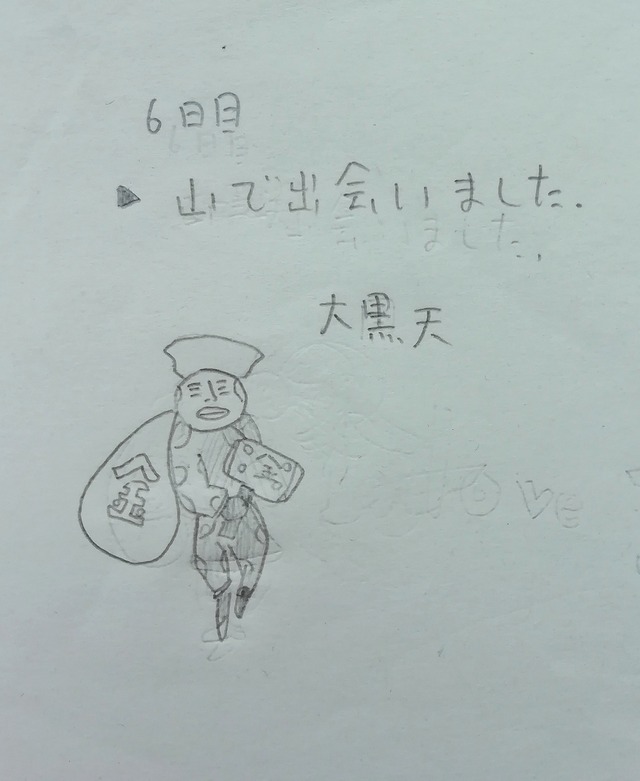 6日目
▶ 山で出会いました.
大黒天
金
金
love